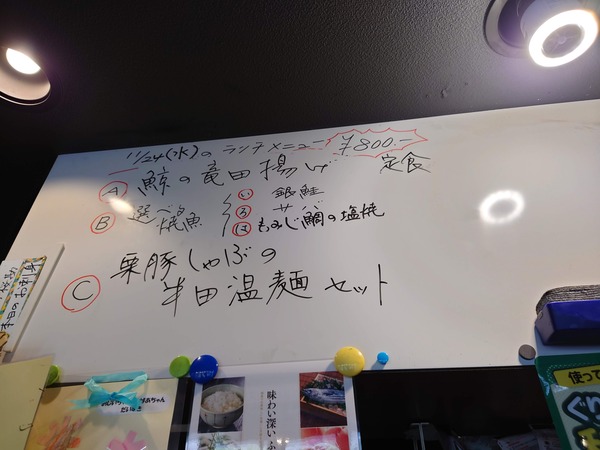 11/24(水)のランチメニュー ¥800.-
Ⓐ 鯨の竜田揚げ 定食
Ⓑ 選べる焼魚
い 銀鮭
ろ サバ
は もみじ鯛の塩焼
Ⓒ 栗豚しゃぶの
半田温麺セット
味わい深い
使って